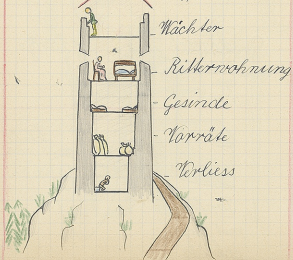 Wächter
Ritterwohnung
Gesinde
Vorräte
Verliess